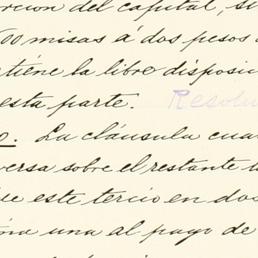 rcion del capital, si
00 misas á dos pesos
tiene la libre disposic
esta parte. Resolu
o. La cláusula cua
versa sobre el restante t
ue este tercio en dos
una al pago de